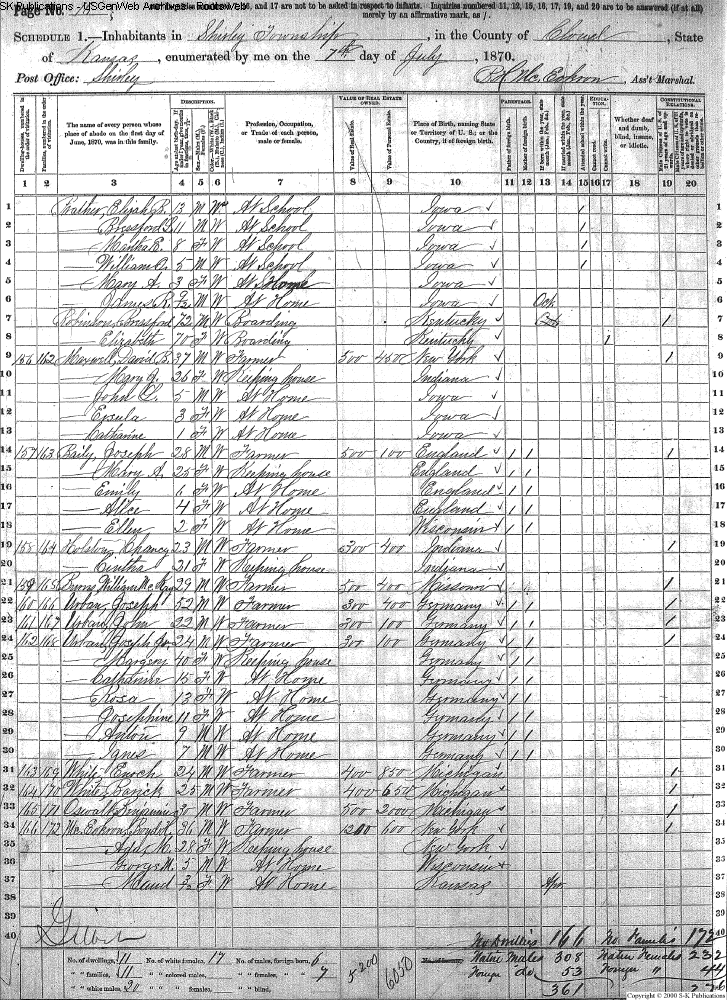 SK Publications - USGenWeb Archives - Rootsweb
Page No.
Inquiries numbered 11, 12, 15, 16, 17, 19, and 20 are to be answered (if at all)
merely by an affirmative mark, as /.
SCHEDULE 1.—Inhabitants in Shirley Township, in the County of Cloud, State
of Kansas, enumerated by me on the 7th day of July, 1870.
Post Office: Shirley R.H. McEckron, Ass't Marshal.
DESCRIPTION. VALUE OF REAL ESTATE OWNED. PARENTAGE. EDUCATION. CONSTITUTIONAL RELATIONS.
The name of every person whose place of abode on the first day of June, 1870, was in this family. Profession, Occupation, or Trade of each person, male or female. Value of Real Estate. Value of Personal Estate. Place of Birth, naming State or Territory of U. S.; or the Country, if of foreign birth. Father of foreign birth. Mother of foreign birth. Attended school within the year. Cannot read. Cannot write. Whether deaf and dumb, blind, insane, or idiotic.
1 2 3 4 5 6 7 8 9 10 11 12 13 14 15 16 17 18 19 20
1 Prather, Elijah R. 13 M W At School Iowa / 1
2 — Bressford T. 11 M W At School Iowa / 2
3 — Martha E. 8 F W At School Iowa / 3
4 — William A. 5 M W At School Iowa / 4
5 — Mary A. 3 F W At Home Iowa 5
6 — James R. M W At Home Iowa Oct 6
7 Robinson, Bressford 72 M W Boarding Kentucky / 7
8 — Elizabeth 70 F W Boarding Kentucky / 8
9 156 162 Maxwell, David B. 37 M W Farmer 500 450 New York / 9
10 — Mary J. 26 F W Keeping house Indiana 10
11 — John 5 M W At Home Iowa 11
12 — Ersula 3 F W At Home Iowa 12
13 — Catharine 1 F W At Home Iowa 13
14 157 163 Baily, Joseph 28 M W Farmer 500 100 England / / / 14
15 — Mary A. 25 F W Keeping house England / / 15
16 — Emily 6 F W At Home England / / 16
17 — Alice 4 F W At Home England / / 17
18 — Ellen 2 F W At Home Wisconsin / / 18
19 158 164 Holston, Chancy 23 M W Farmer 300 400 Indiana / 19
20 — Cintha 21 F W Keeping house Indiana 20
21 159 165 William Mc 29 M W Farmer 500 400 Missouri / 21
22 160 166 Urban, Joseph 52 M W Farmer 300 400 Germany / / / 22
23 161 167 Urban, John 22 M W Farmer 300 100 Germany / / / 23
24 162 168 Urban, Joseph Jr. 24 M W Farmer 300 100 Germany / / / 24
25 — Margery 40 F W Keeping house Germany / / 25
26 — Catharine 15 F W At Home Germany / / 26
27 — Rosa 13 F W At Home Germany / / 27
28 — Josephine 11 F W At Home Germany / / 28
29 — Anton 9 M W At Home Germany / / 29
30 — Janes 7 M W At Home Germany / / 30
31 163 169 White, Enoch 24 M W Farmer 400 850 Michigan / 31
32 164 170 White, Barick 25 M W Farmer 400 650 Michigan / 32
33 165 171 Oswalt, Benjamin 30 M W Farmer 500 2000 Michigan / 33
34 166 172 McEckron, Boyd H. 36 M W Farmer 1200 600 New York / 34
35 — Adda M. 28 F W Keeping house New York 35
36 — George M. 5 M W At Home Wisconsin 36
37 — Maud F W At Home Kansas Apr 37
38 38
39 39
40 No Dwellings 166 No Families 172 40
No. of dwellings, 11 No. of white females, 17 No. of males, foreign born, 6 5200 6050 Native Males 308 Native Females 232
" " families, 11 " " colored males, " " females, " " 7 Foreign do. 53 Foreign " 44
" " white males, 20 " " females, " " blind, 361
Copyright © 2000 S-K Publications